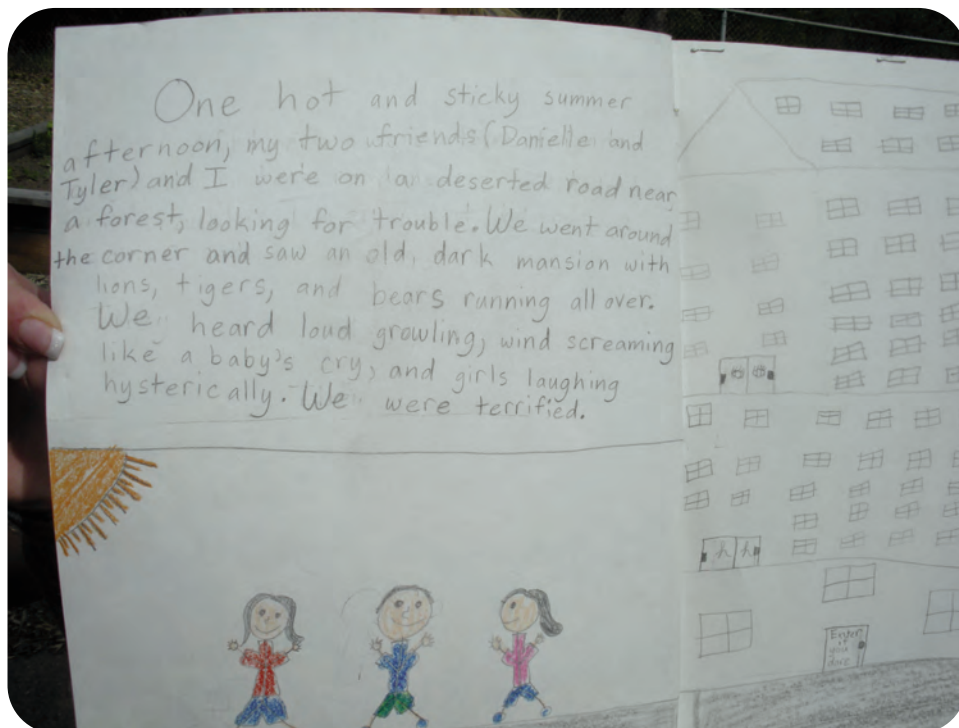 One hot and sticky summer
afternoon, my two friends (Danielle and
Tyler) and I were on a deserted road near
a forest, looking for trouble. We went around
the corner and saw an old, dark mansion with
lions, tigers, and bears running all over.
We heard loud growling, wind screaming
like a baby's cry, and girls laughing
hysterically. We were terrified.
Enter
if
you
dare